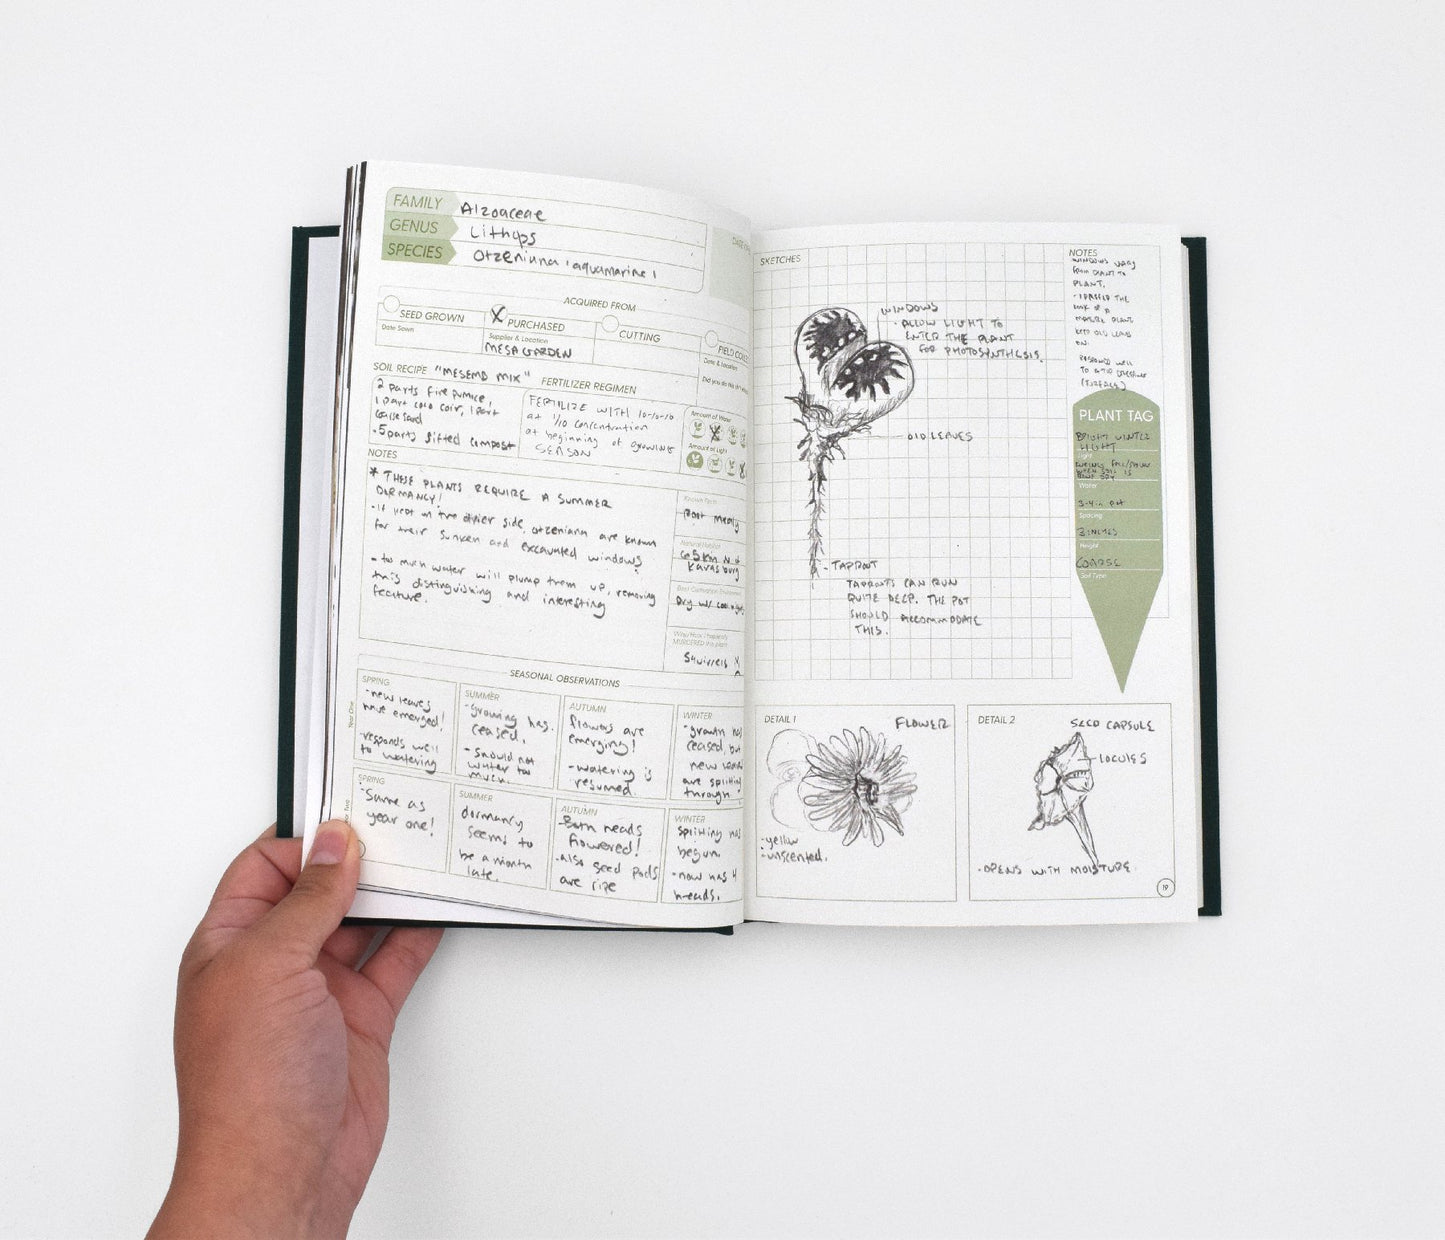 FAMILY Aizoaceae
GENUS Lithops
SPECIES Otzeniana 'aquamarine'
ACQUIRED FROM
SEED GROWN
Date Sown
X PURCHASED
Supplier & Location
MESA GARDEN
CUTTING
FIELD
Date & Location
Did you do this
SOIL RECIPE "MESEMB MIX"
2 parts fine pumice,
1 part coco coir, 1 part
coarse sand
.5 parts sifted compost
FERTILIZER REGIMEN
FERTILIZE WITH 10-10-10
at 1/10 concentration
at beginning of growing
SEASON
Amount of Water
Amount of Light
NOTES
* THESE PLANTS REQUIRE A SUMMER
DORMANCY!
- If kept on the drier side, otzeniana are known
for their sunken and excavated windows
- to much water will plump them up, removing
this distinguishing and interesting
feature.
Known Pests
Root mealy
Natural Habitat
Karasburg
Best Cultivation Environment
Dry w/ cool
MURDERED this plant
Squirrels
SEASONAL OBSERVATIONS
Year One
SPRING
-new leaves
have emerged!
-responds well
to watering
SUMMER
-growing has
ceased.
-should not
water too
much.
AUTUMN
flowers are
emerging!
-watering is
resumed.
WINTER
-growth has
ceased, but
new leaves
are splitting
through
Year Two
SPRING
-Same as
year one!
SUMMER
dormancy
seems to
be a month
late.
AUTUMN
-Both heads
flowered!
-also seed pods
are ripe
WINTER
splitting has
begun.
-now has 4
heads.
SKETCHES
WINDOWS
- ALLOW LIGHT TO
ENTER THE PLANT
FOR PHOTOSYNTHESIS.
OLD LEAVES
- TAPROOT
TAPROOTS CAN RUN
QUITE DEEP. THE POT
SHOULD ACCOMMODATE
THIS.
NOTES
WINDOWS VARY
FROM PLANT TO
PLANT.
LOOK OF A
MATURE PLANT
KEEP OLD LEAVES
ON.
RESPONDS WELL
TO
PLANT TAG
BRIGHT WINTER
LIGHT
Light
WHEN SOIL IS
BONE DRY
Water
3-4 in
Spacing
3 INCHES
Height
COARSE
Soil Type
DETAIL 1
FLOWER
-yellow
-unscented.
DETAIL 2
SEED CAPSULE
LOCULES
- OPENS WITH MOISTURE.
19